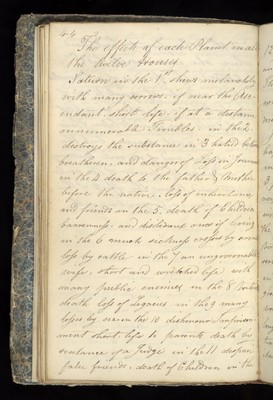 44
The effects of each Planet in all
the twelve Houses
Saturn in the 1st shews melancholy
with many sorrows, if near the Asc
endant short life, if at a distance
innumerable Troubles, in the 2
destroys the substance in 3 hatred between
breatheren, and danger of Loss in Journeys
in the 4 death to the father & Mother
before the native, loss of inheritance
and friends in the 5. death of Children
barrenness, and
in the 6 much sickness crosses by
loss by cattle in the 7 an ungovernable
wife, short and wretched life with
many public enemies in the 8
death loss of Legacies in the 9 many
losses by sea in the 10 dishonour Imprison
ment short life to parents death by
sentance of a Judge in the 11
false friends, death of Children in the